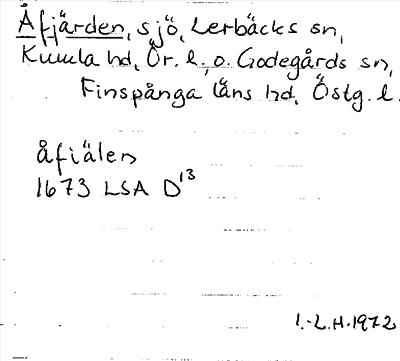 Åfjärden, sjö, Lerbäcks sn,
Kumla hd, Ör. l., o. Godegårds sn,
Finspånga läns hd, Östg. l.
åfiälen
1673 LSA D13
I.-L.H. 1972